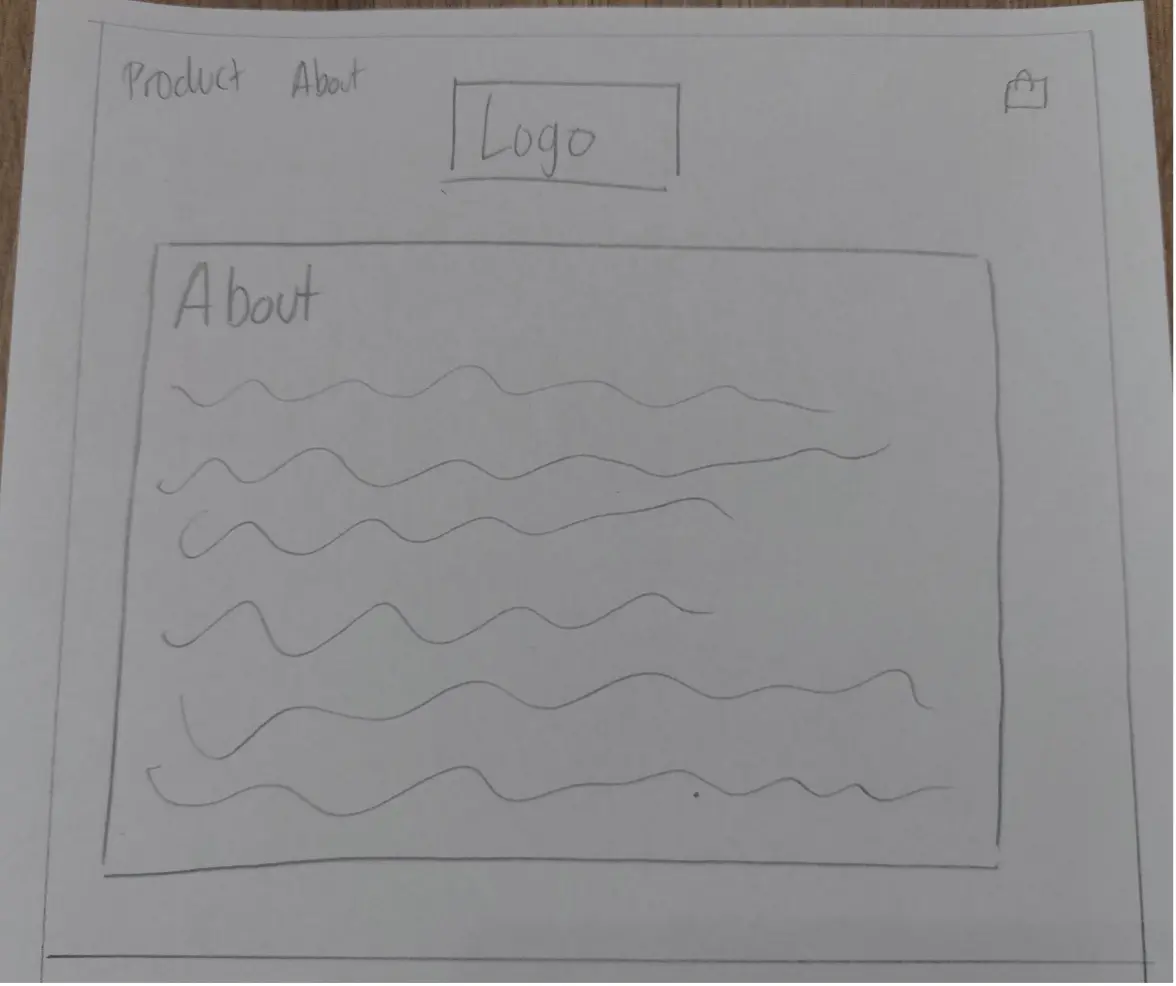 Product About
Logo
About